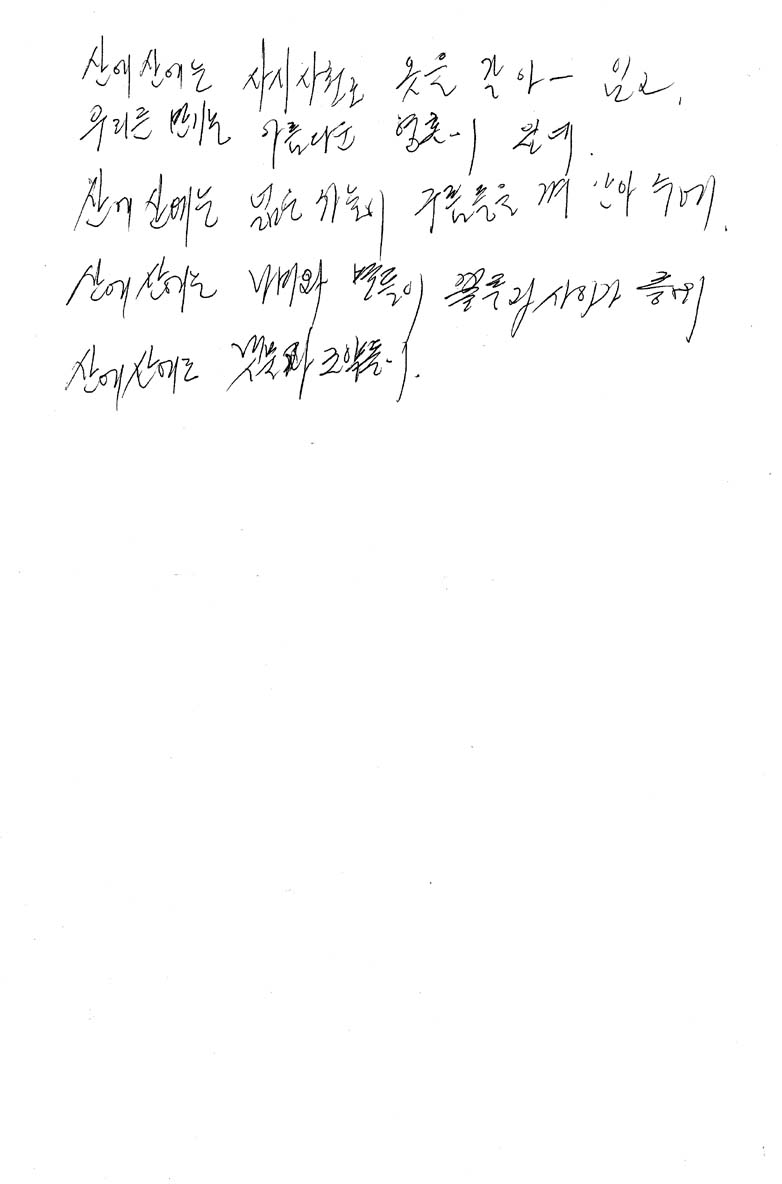 산에 산에는 사시사철로 옷을 갈아 입고,
우리를 반기는 아름다운 영혼이 있네.
산에 산에는 넓은 하늘이 구름들을 껴안아 주네.
산에 산에는 나비와 벌들이 꽃들과 사이가 좋네
산에 산에는 냇물과 조약돌이.